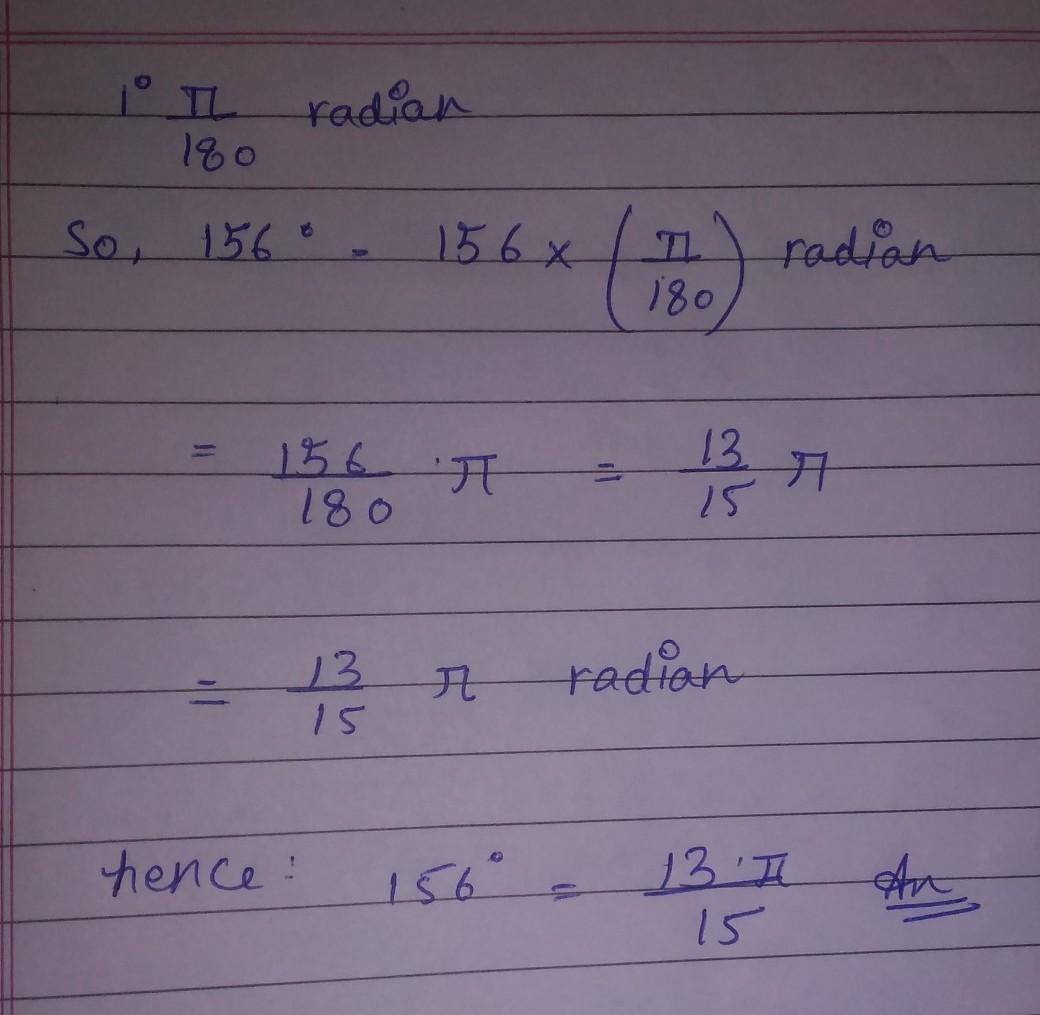 1° π/180 radian
So, 156° - 156 × (π/180) radian
= 156/180 · π = 13/15 π
= 13/15 π radian
hence: 156° = 13·π/15 An